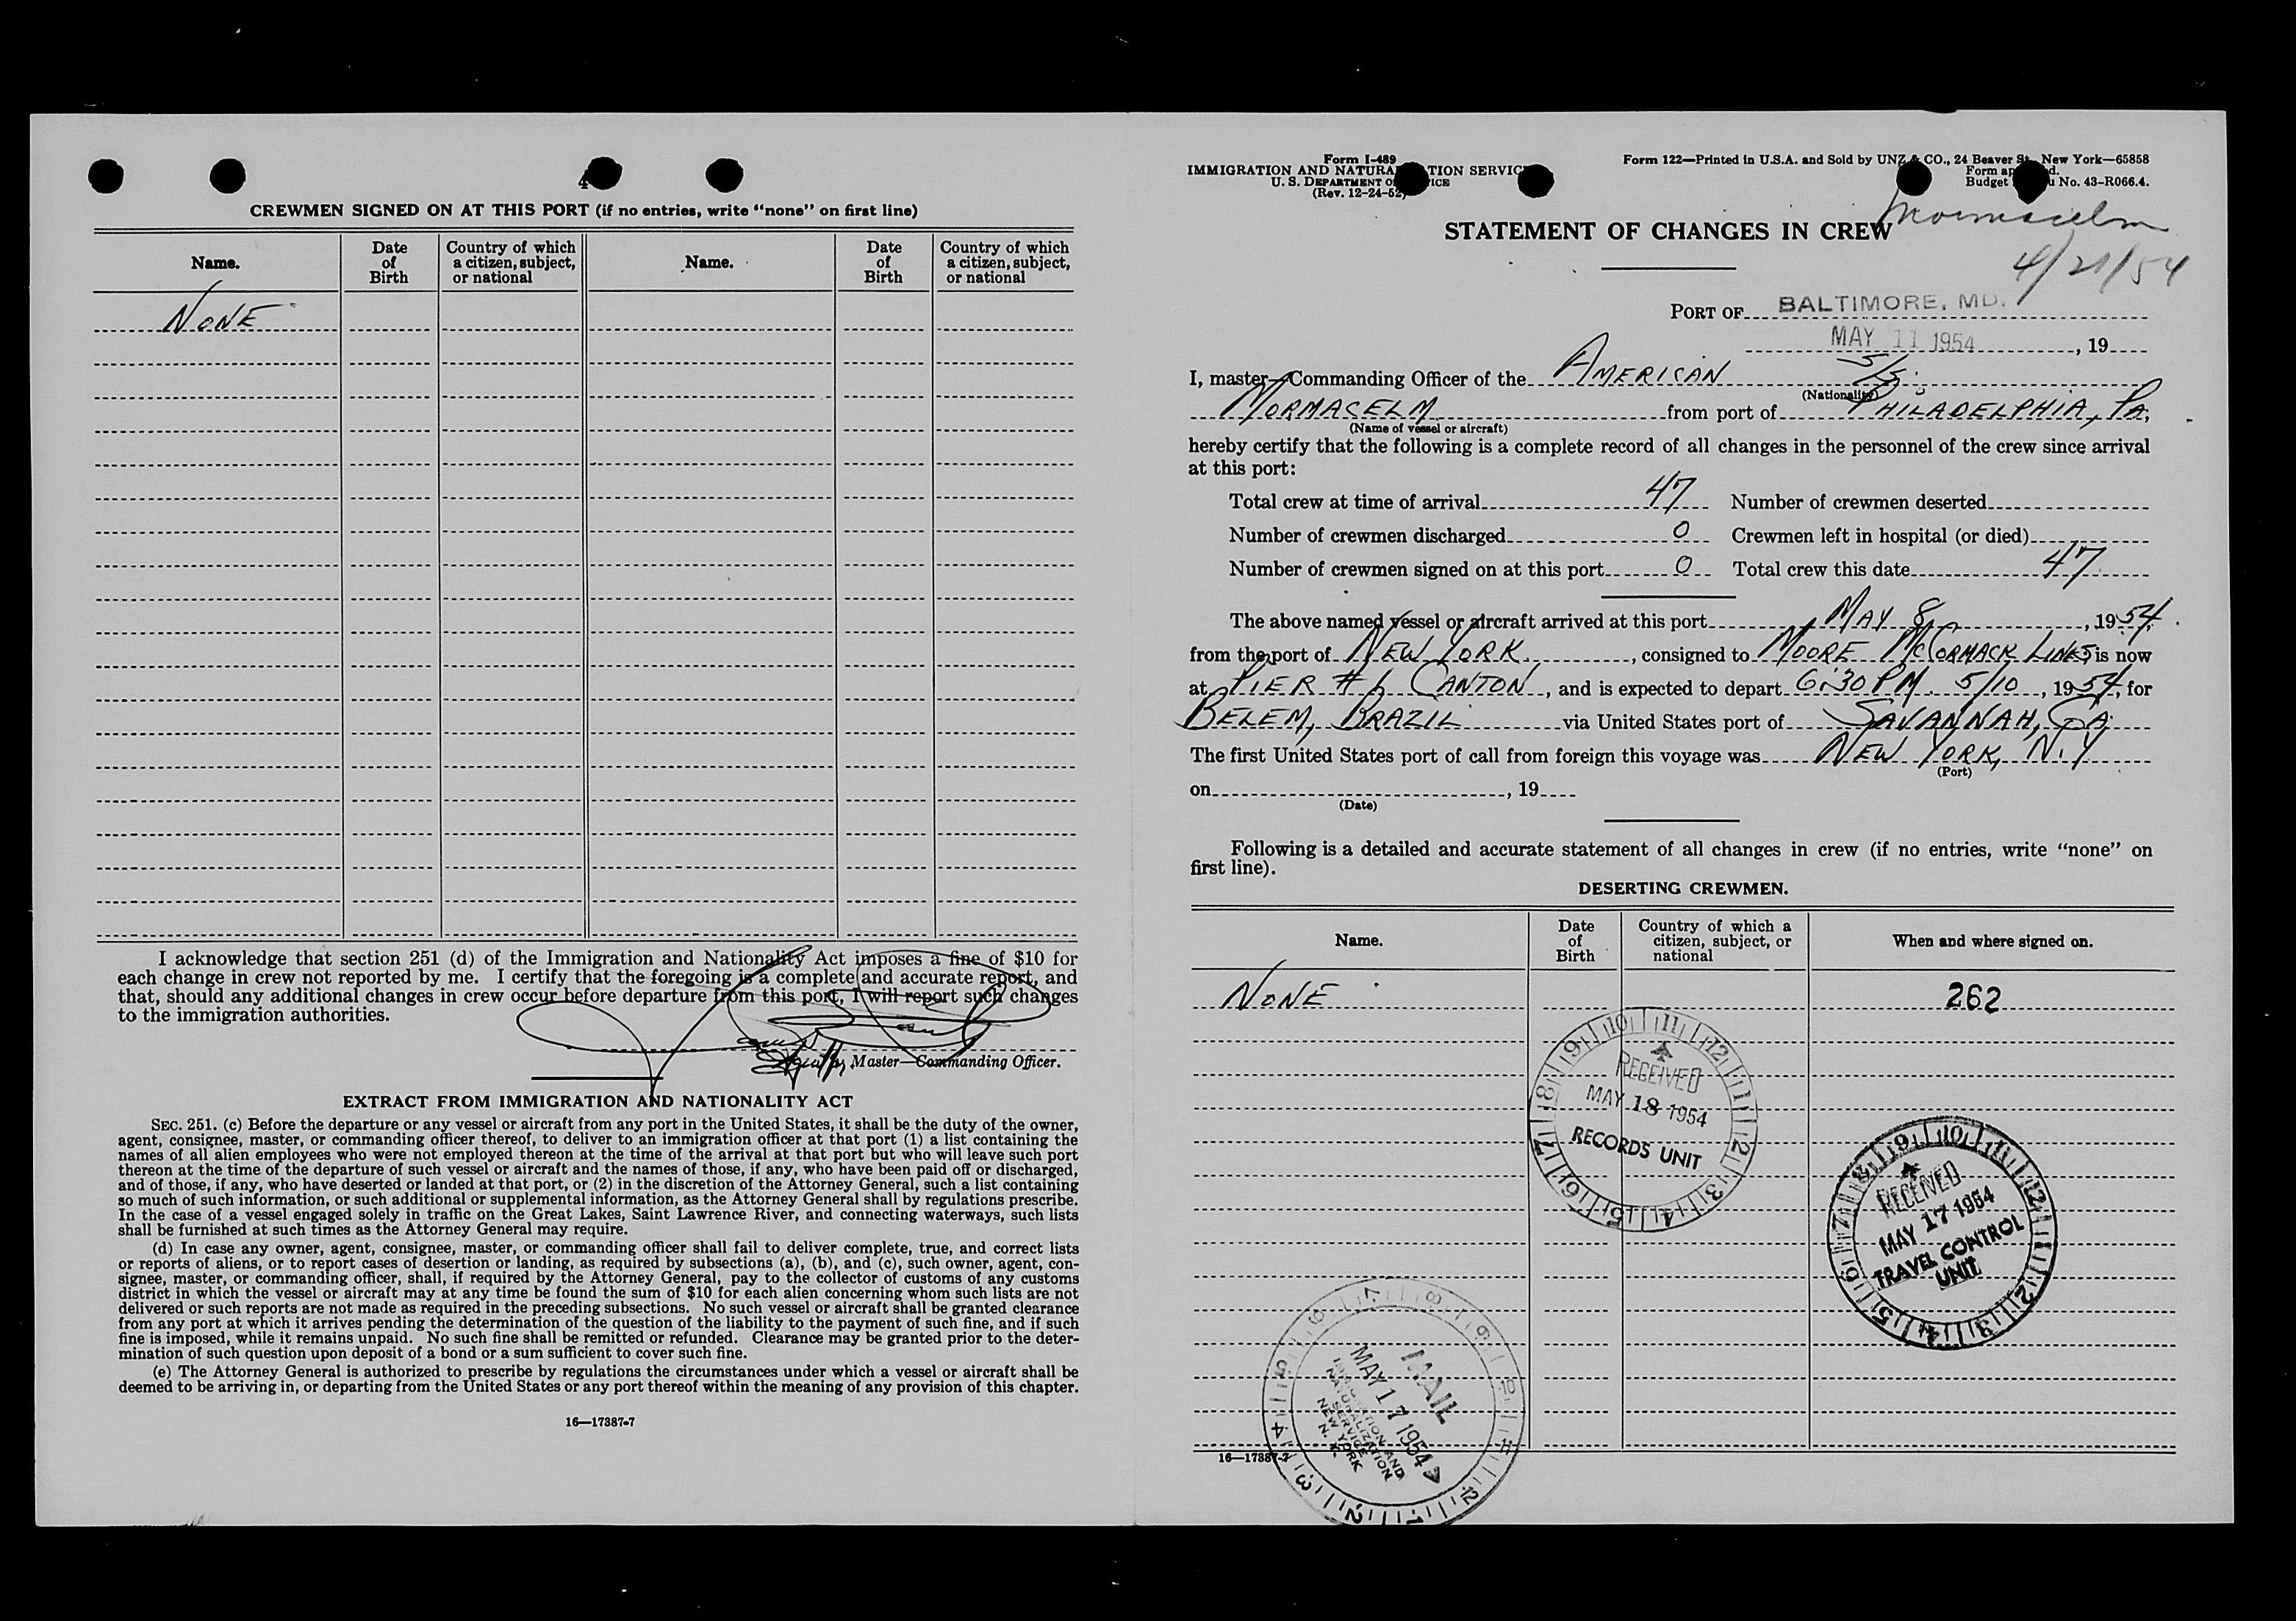 4
CREWMEN SIGNED ON AT THIS PORT (if no entries, write “none” on first line)
Name.
Date of Birth
Country of which a citizen, subject, or national
Name.
Date of Birth
Country of which a citizen, subject, or national
NONE
I acknowledge that section 251 (d) of the Immigration and Nationality Act imposes a fine of $10 for
each change in crew not reported by me. I certify that the foregoing is a complete and accurate report, and
that, should any additional changes in crew occur before departure from this port, I will report such changes
to the immigration authorities.
Master—Commanding Officer.
EXTRACT FROM IMMIGRATION AND NATIONALITY ACT
SEC. 251. (c) Before the departure or any vessel or aircraft from any port in the United States, it shall be the duty of the owner,
agent, consignee, master, or commanding officer thereof, to deliver to an immigration officer at that port (1) a list containing the
names of all alien employees who were not employed thereon at the time of the arrival at that port but who will leave such port
thereon at the time of the departure of such vessel or aircraft and the names of those, if any, who have been paid off or discharged,
and of those, if any, who have deserted or landed at that port, or (2) in the discretion of the Attorney General, such a list containing
so much of such information, or such additional or supplemental information, as the Attorney General shall by regulations prescribe.
In the case of a vessel engaged solely in traffic on the Great Lakes, Saint Lawrence River, and connecting waterways, such lists
shall be furnished at such times as the Attorney General may require.
(d) In case any owner, agent, consignee, master, or commanding officer shall fail to deliver complete, true, and correct lists
or reports of aliens, or to report cases of desertion or landing, as required by subsections (a), (b), and (c), such owner, agent, con-
signee, master, or commanding officer, shall, if required by the Attorney General, pay to the collector of customs of any customs
district in which the vessel or aircraft may at any time be found the sum of $10 for each alien concerning whom such lists are not
delivered or such reports are not made as required in the preceding subsections. No such vessel or aircraft shall be granted clearance
from any port at which it arrives pending the determination of the question of the liability to the payment of such fine, and if such
fine is imposed, while it remains unpaid. No such fine shall be remitted or refunded. Clearance may be granted prior to the deter-
mination of such question upon deposit of a bond or a sum sufficient to cover such fine.
(e) The Attorney General is authorized to prescribe by regulations the circumstances under which a vessel or aircraft shall be
deemed to be arriving in, or departing from the United States or any port thereof within the meaning of any provision of this chapter.
16—17387-7
Form I-489
IMMIGRATION AND NATURA TION SERVIC
U. S. DEPARTMENT O ICE
(Rev. 12-24-52)
Form 122—Printed in U.S.A. and Sold by UNZ & CO., 24 Beaver St., New York—65858
Form ap d.
Budget u No. 43-R066.4.
Mormacelm
4/21/54
STATEMENT OF CHANGES IN CREW
PORT OF BALTIMORE, MD.
MAY 11 1954, 19
I, master—Commanding Officer of the AMERICAN S/S
(Nationality)
MORMACELM from port of PHILADELPHIA, PA,
(Name of vessel or aircraft)
hereby certify that the following is a complete record of all changes in the personnel of the crew since arrival
at this port:
Total crew at time of arrival 47 Number of crewmen deserted
Number of crewmen discharged 0 Crewmen left in hospital (or died)
Number of crewmen signed on at this port 0 Total crew this date 47
The above named vessel or aircraft arrived at this port MAY 8, 1954,
from the port of NEW YORK, consigned to MOORE McCORMACK LINES is now
at PIER #1 CANTON, and is expected to depart 6:30 PM. 5/10, 1954, for
BELEM, BRAZIL via United States port of SAVANNAH, GA.
The first United States port of call from foreign this voyage was NEW YORK, N.Y
(Port)
on , 19
(Date)
Following is a detailed and accurate statement of all changes in crew (if no entries, write “none” on
first line).
DESERTING CREWMEN.
Name.
Date of Birth
Country of which a citizen, subject, or national
When and where signed on.
NONE
262
RECEIVED
MAY 18 1954
RECORDS UNIT
RECEIVED
MAY 17 1954
TRAVEL CONTROL
UNIT
MAIL
MAY 17 1954
IMMIGRATION AND
NATURALIZATION
SERVICE
NEW YORK
N. Y.
16—17387-7